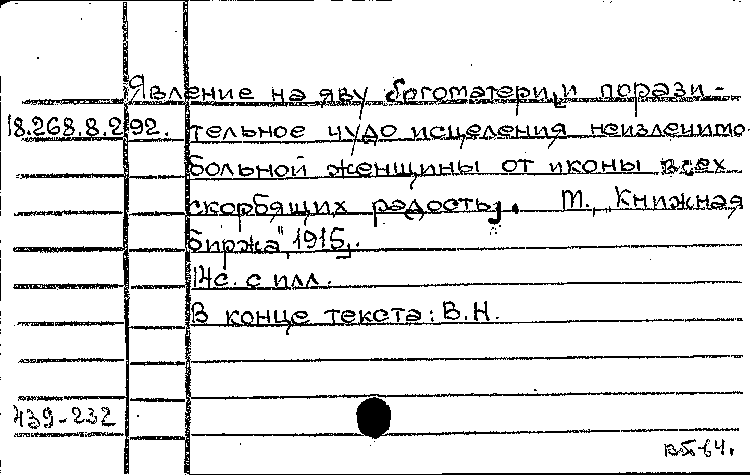 Явление на яву богоматери, и порази-
18.268.8.292. тельное чудо исцеления неизлечимо
больной женщины от иконы всех
скорбящих радость]. М., "Книжная
биржа", 1915].
14с. с илл.
В конце текста: В.Н.
439-232
вб-64.